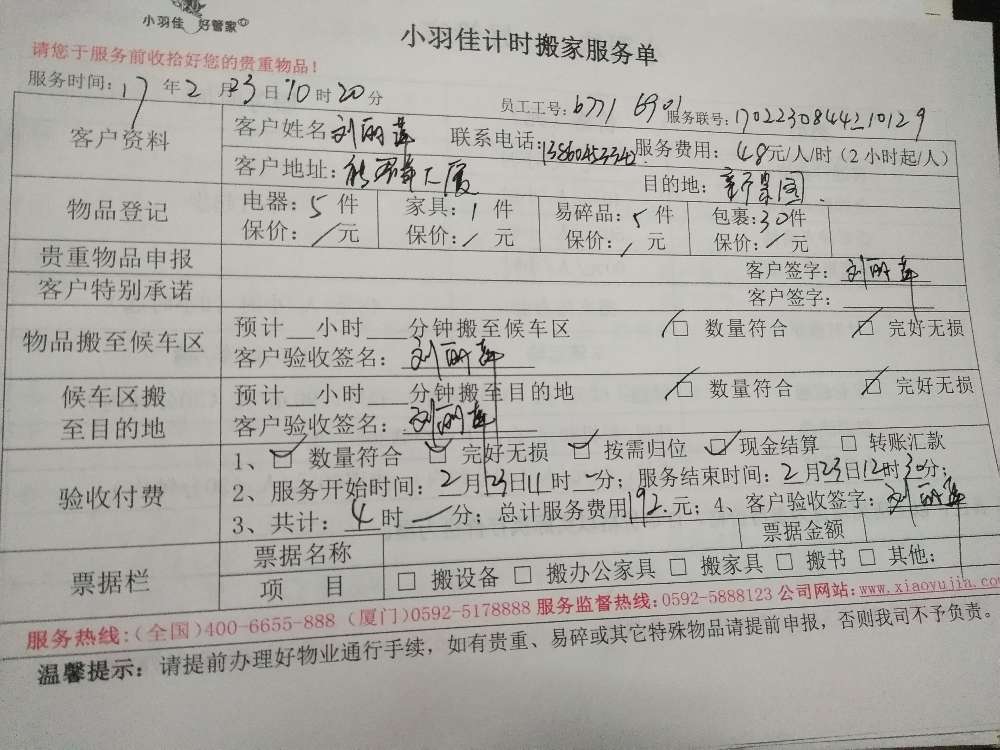 小羽佳 好管家
小羽佳计时搬家服务单
请您于服务前收拾好您的贵重物品！
服务时间：17年2月23日10时20分 员工工号：6771 6901 服务联号：1702230844210129
客户资料
客户姓名 刘丽萍 联系电话：13860453342 服务费用：48元/人/时（2小时起/人）
客户地址： 大厦 目的地：新景园
物品登记
电器：5件 家具：1件 易碎品：5件 包裹：30件
保价：/元 保价：/元 保价：/元 保价：/元
贵重物品申报 客户签字：刘丽萍
客户特别承诺 客户签字：
物品搬至候车区
预计__小时___分钟搬至候车区 □ 数量符合 □ 完好无损
客户验收签名：刘丽萍
候车区搬至目的地
预计__小时___分钟搬至目的地 □ 数量符合 □ 完好无损
客户验收签名：刘丽萍
验收付费
1、☑ 数量符合 ☑ 完好无损 ☑ 按需归位 ☑ 现金结算 □ 转账汇款
2、服务开始时间：2月23日11时/分；服务结束时间：2月23日12时30分；
3、共计：4时/分；总计服务费用192元；4、客户验收签字：刘丽萍
票据栏
票据名称 票据金额
项 目 □ 搬设备 □ 搬办公家具 □ 搬家具 □ 搬书 □ 其他：
服务热线：（全国）400-6655-888（厦门）0592-5178888 服务监督热线：0592-5888123 公司网站：www.xiaoyujia.com
温馨提示：请提前办理好物业通行手续，如有贵重、易碎或其它特殊物品请提前申报，否则我司不予负责。